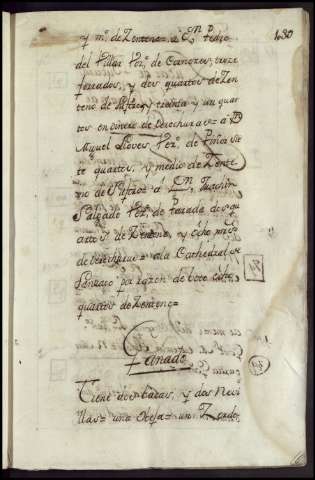 430
y m.º de Zenteno = a D.n Pedro
del Villar Vez.º de Canores, treze
ferrados, y dos quartos de Zen
teno de Y y treinta y un quar
tos en dinero de derechuras = a D.n
Miguel Lloves Vez.º de Piñor sie
te quartos, y medio de Zente
no de = a D.n Juachin
Salgado Vez.º de Parada dos qu
artos de Zenteno, y ocho mrs
de derechuras = a la Cathedral de
Santiago por razon de boto ocho
quartos de Zenteno =
Ganado
Tiene dos bacas, y dos Novi
llas = una Oveja = un Zerdo,